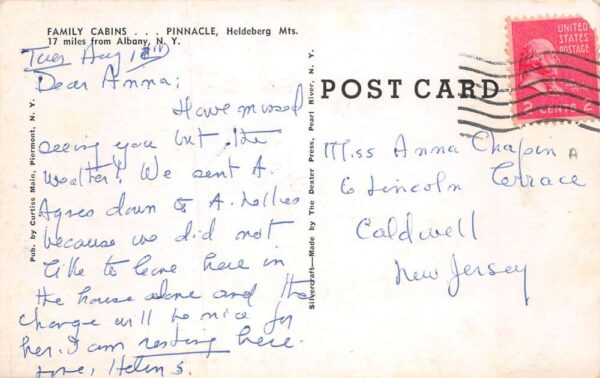 FAMILY CABINS . . . PINNACLE, Heldeberg Mts.
17 miles from Albany, N. Y.
Tues Aug
Dear Anna;
Have missed
seeing you but the
weather! We sent A.
Agnes down to A. Nellies
because we did not
like to leave her in
the house alone and the
change will be nice for
her. I am resting here.
Love, Helen S.
Pub. by Curtiss Main, Piermont, N. Y.
Silvercraft—Made by The Dexter Press, Pearl River, N. Y.
POST CARD
UNITED
STATES
POSTAGE
2 CENTS 2
Miss Anna Chapin
6 Lincoln Terrace
Caldwell
New Jersey